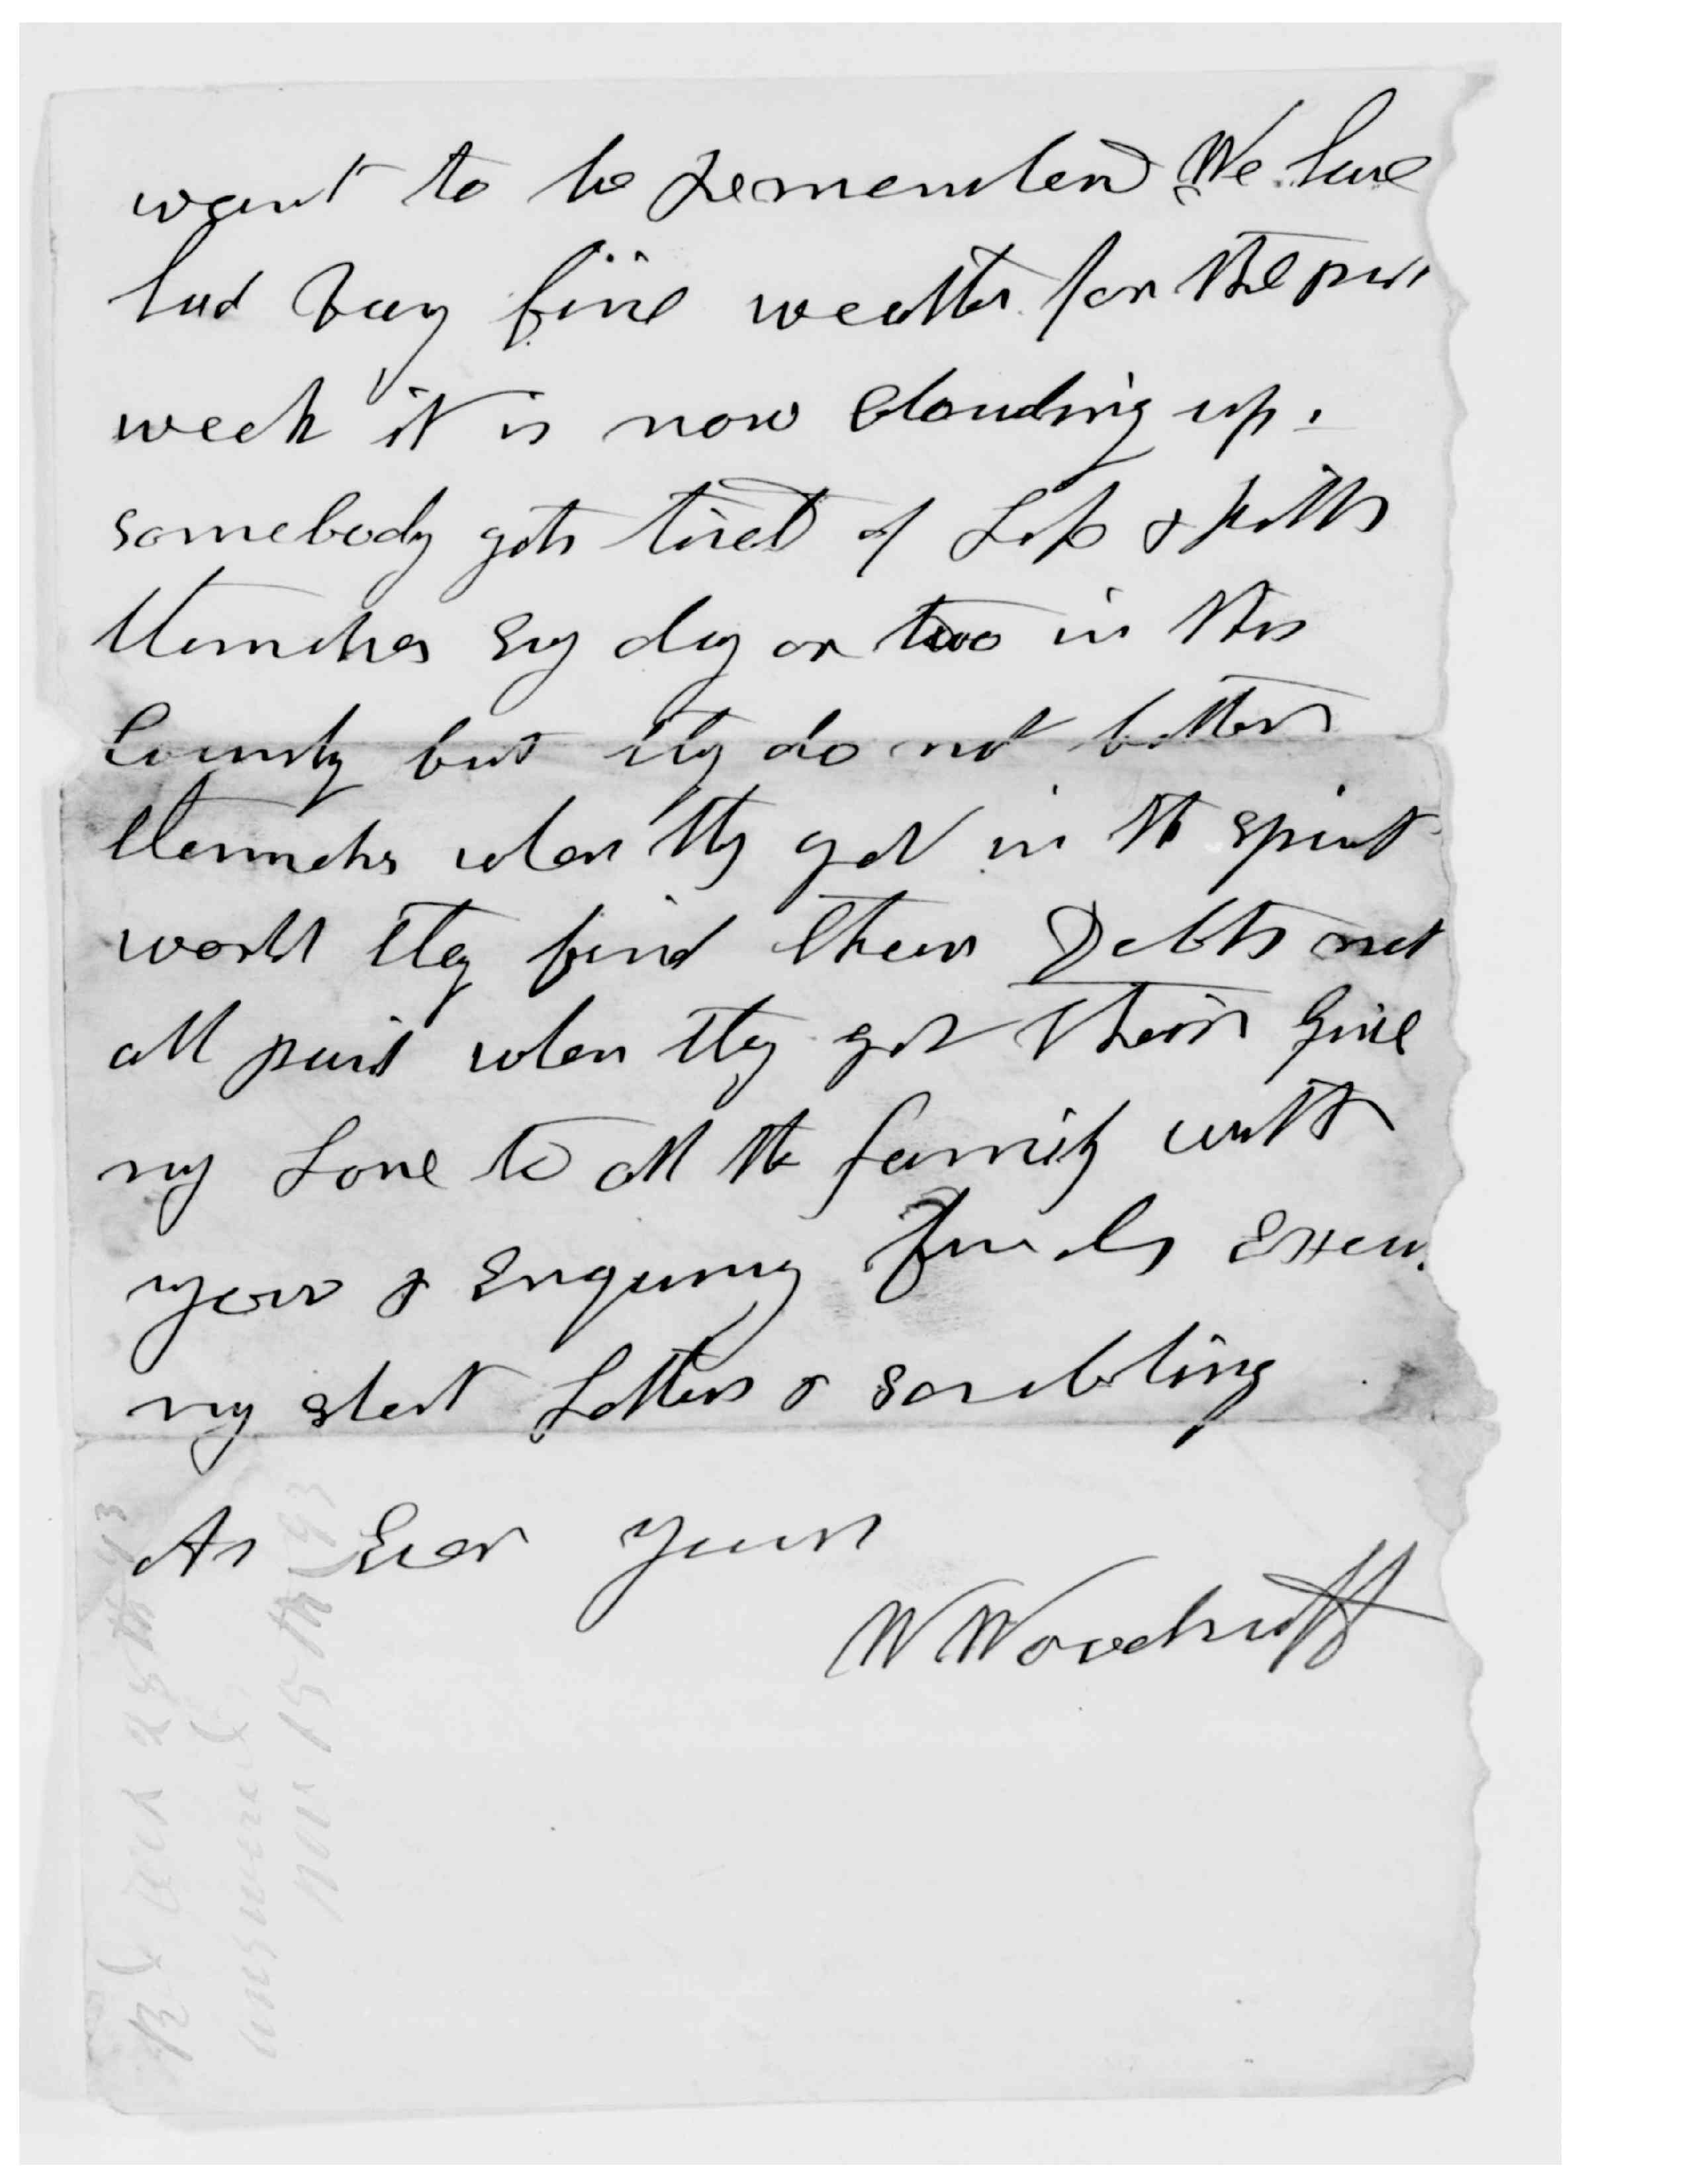 want to be rememberd We have
had vary fine weather for the past
week it is now Clouding up.
somebody gets tired of Life & kills
themselves Evry day or two in this
County but they do not better
themselves when they get in the spirit
world they find their Debts not
all paid when they get their Give
my Love to all the family with
your & Enquiring friends Excu
my short Letters & scribbling
As Ever yours
W Woodruff
answered
Nov 15th 93